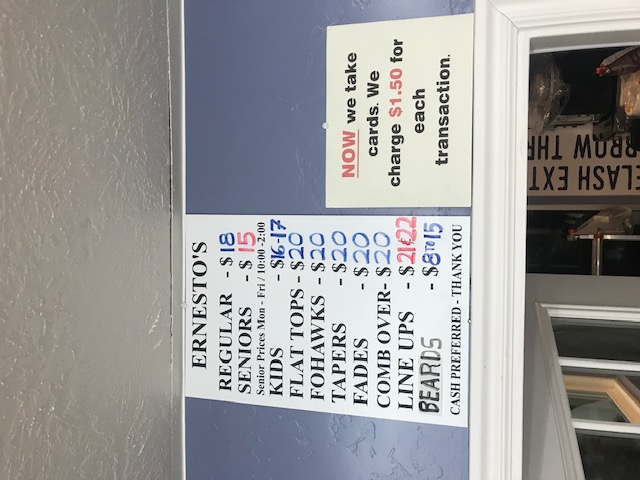 ERNESTO'S
REGULAR - $18
SENIORS - $15
Senior Prices Mon - Fri / 10:00 -2:00
KIDS - $16-17
FLAT TOPS - $20
FOHAWKS - $20
TAPERS - $20
FADES - $20
COMB OVER- $20
LINE UPS - $21&22
BEARDS - $8 TO 15
CASH PREFERRED - THANK YOU
NOW we take
cards. We
charge $1.50 for
each
transaction.
FLASH EXT